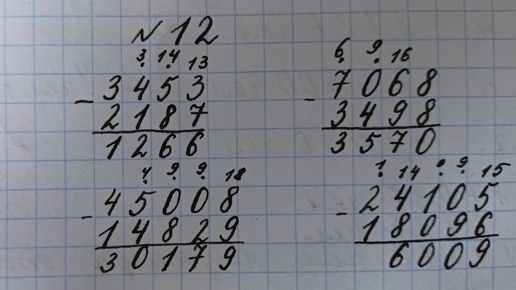 № 12
3 14 13
3453
- 2187
1266
6 9 16
7068
- 3498
3570
4 9 9 18
45008
- 14829
30179
1 14 0 9 15
24105
- 18096
6009